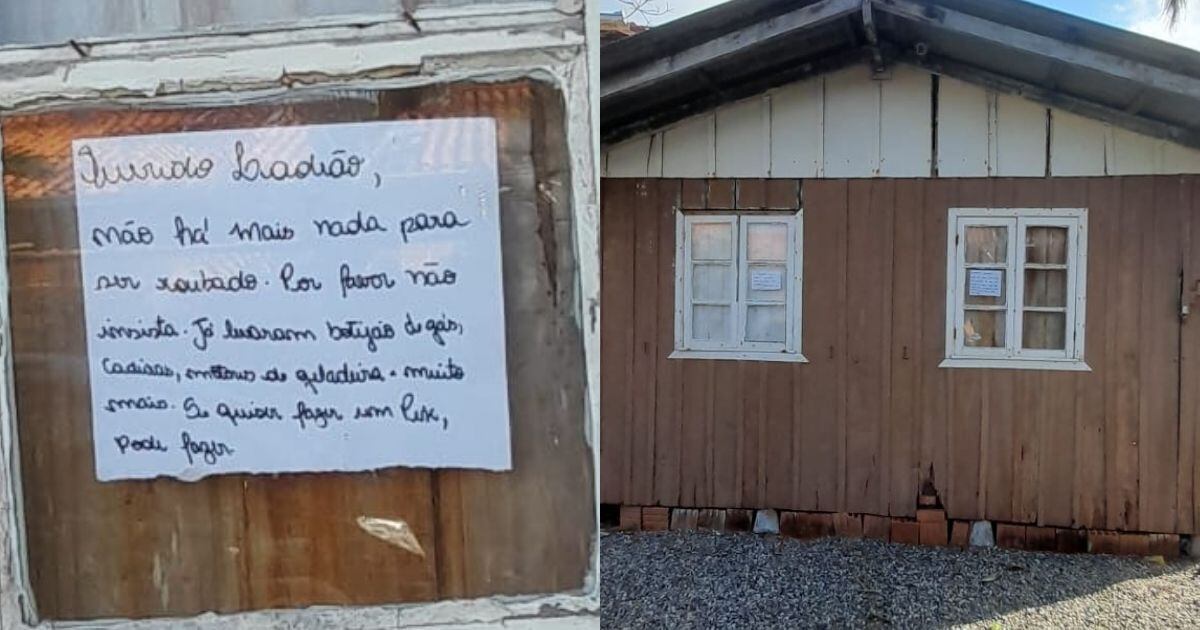 Querido Ladrão,
não há mais nada para
ser roubado. Por favor não
insista. Já levaram botijão de gás,
Cadeiras, motores de geladeira e muito
mais. Se quiser fazer um Pix,
pode fazer